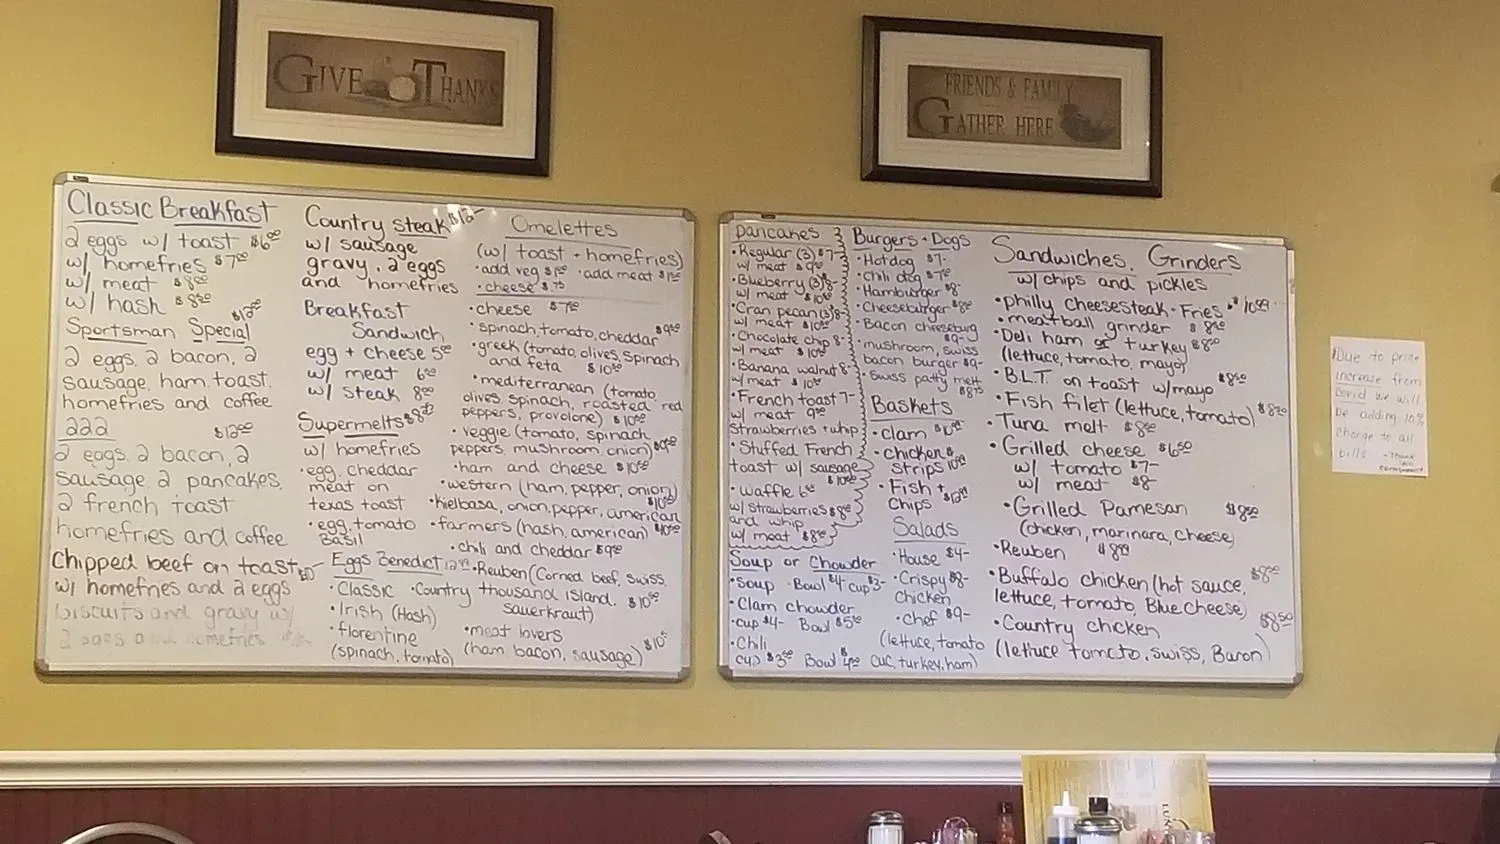 GIVE THANKS
FRIENDS & FAMILY
GATHER HERE
Classic Breakfast
2 eggs w/ toast $6.00
w/ homefries $7.00
w/ meat $8.00
w/ hash
$12.00
Sportsman Special
2 eggs, 2 bacon, 2
sausage, ham, toast,
homefries and coffee
222 $12.00
2 eggs, 2 bacon, 2
sausage, 2 pancakes,
2 french toast
homefries and coffee
Chipped beef on toast
w/ homefries and 2 eggs
biscuits and gravy w/
2 eggs and homefries
Country Steak $12-
w/ sausage
gravy, 2 eggs
and homefries
Breakfast
Sandwich
egg + cheese 5.00
w/ meat 6.00
w/ steak 8.00
Supermelts
w/ homefries
• egg, cheddar
meat on
texas toast
• egg, tomato
Basil
Eggs Benedict
• Classic • Country
• Irish (Hash)
• florentine
(spinach, tomato)
Omelettes
(w/ toast + homefries)
• add veg • add meat
• cheese $.75
• cheese
• spinach, tomato, cheddar
• greek (tomato, olives, spinach
and feta $10.00
• mediterranean (tomato
olives, spinach, roasted red
peppers, provolone) $10.00
• veggie (tomato, spinach
peppers, mushroom, onion)
• ham and cheese $10.00
• western (ham, pepper, onion)
• kielbasa, onion, pepper, american
• farmers (hash, american)
• chili and cheddar
• Reuben (Corned beef, swiss,
thousand island,
sauerkraut)
• meat lovers
(ham bacon, sausage)
Pancakes
• Regular (3) $7-
w/ meat
• Blueberry (3) 8-
w/ meat
• Cran pecan (3) 8-
w/ meat
• Chocolate chip 8-
w/ meat
• Banana walnut 8-
w/ meat
• French toast 7-
w/ meat
strawberries + whip
• Stuffed French
toast w/ sausage
• Waffle
w/ strawberries
and whip
w/ meat
Soup or Chowder
• Soup Bowl $4 cup $3-
• Clam chowder
• cup $4- Bowl
• Chili
cup Bowl
Burgers + Dogs
• Hotdog $7-
• chili dog
• Hamburger $8-
• Cheeseburger
• Bacon cheeseburg
$9-
• mushroom, swiss
bacon burger $9-
• Swiss patty melt
Baskets
• Clam
• chicken
strips
• Fish +
Chips
Salads
• House $4-
• Crispy $8-
chicken
• Chef $9-
(lettuce, tomato
cuc, turkey, ham)
Sandwiches, Grinders
w/ chips and pickles
• philly cheesesteak • Fries
• meatball grinder
• Deli ham or turkey
(lettuce, tomato, mayo)
• B.L.T. on toast w/mayo $8.50
• Fish filet (lettuce, tomato)
• Tuna melt
• Grilled cheese $6.50
w/ tomato $7-
w/ meat $8-
• Grilled Parmesan $8.50
(chicken, marinara, cheese)
• Reuben
• Buffalo chicken (hot sauce,
lettuce, tomato, Blue cheese)
• Country chicken $8.50
(lettuce tomato, swiss, Bacon)
Due to price
increase from
Covid we will
be adding 10%
charge to all
bills - Thank
you